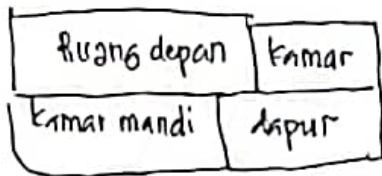 Ruang depan
kamar
kamar mandi
dapur